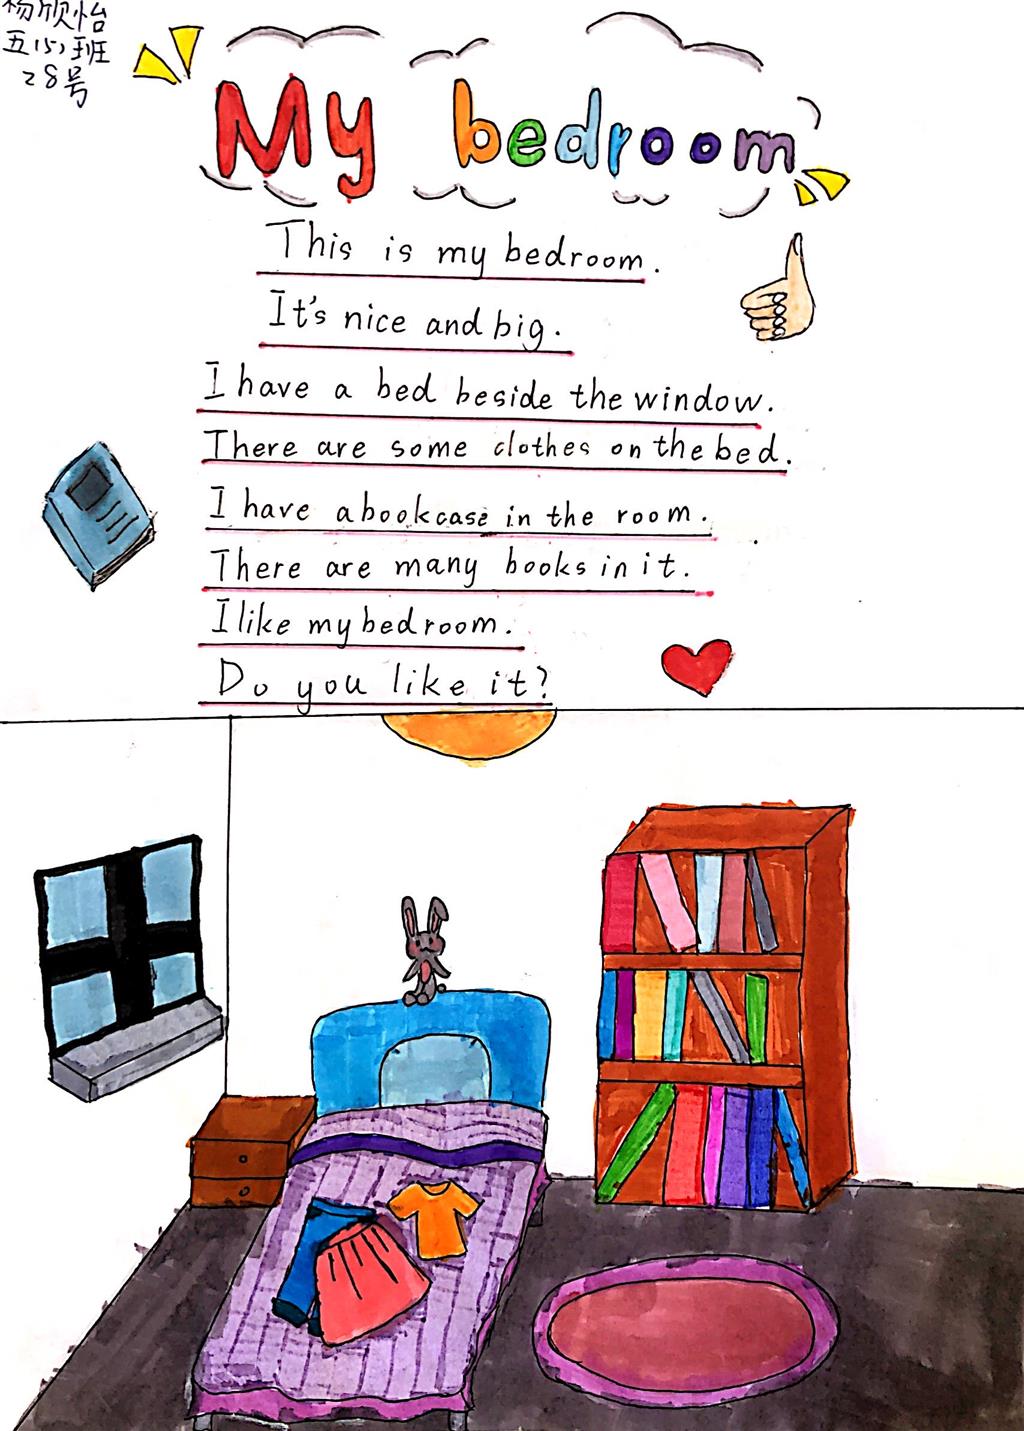 杨欣怡
五(5)班
28号
My bedroom
This is my bedroom.
It's nice and big.
I have a bed beside the window.
There are some clothes on the bed.
I have a bookcase in the room.
There are many books in it.
I like my bedroom.
Do you like it?